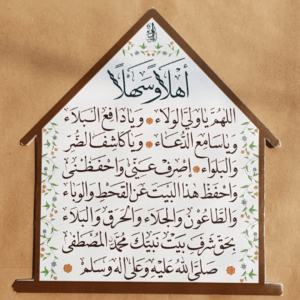 أهلاً وسهلاً
اللهم يا وليَّ الولاء * ويا دافع البلاء
ويا سامع الدُّعاء * ويا كاشف الضُّر
والبلواء * إصرف عنّي واحفظني
واحفظ هذا البيت عن القحط والوباء
والطاعون والجلاء والحرق والبلاء
بحق شرف بيت نبيّك محمّد المصطفى
صلى الله عليه وعلى اله وسلم